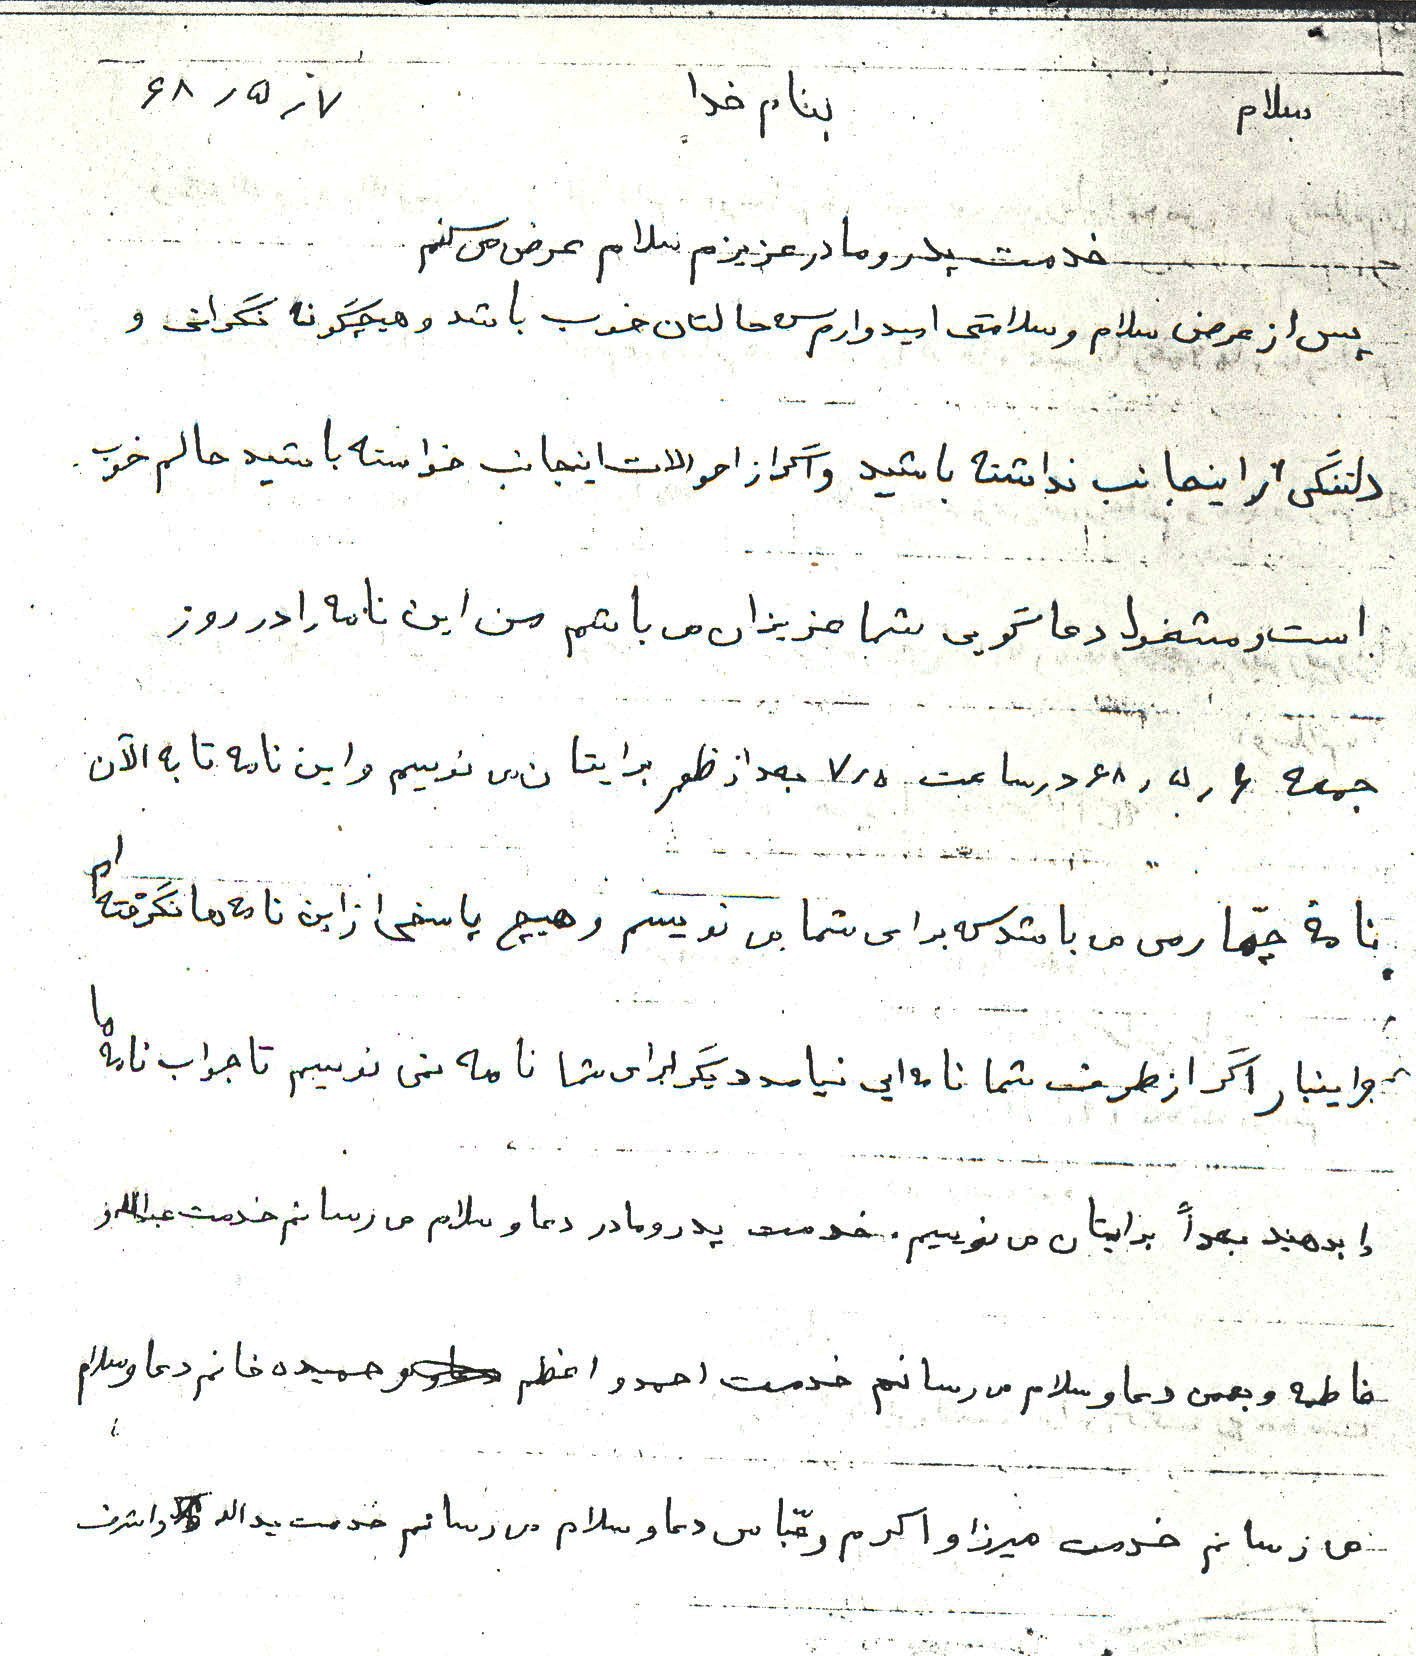 سلام بنام خدا ۷ر۵ر۶۸
خدمت پدر و مادر عزیزم سلام عرض می کنم
پس از عرض سلام و سلامتی امیدوارم که حالتان خوب باشد و هیچگونه نگرانی و
دلتنگی از اینجانب نداشته باشید و اگر از احوالات اینجانب خواسته باشید حالم خوب
است و مشغول دعاگویی شما عزیزان می باشم من این نامه را در روز
جمعه ۶ر۵ر۶۸ در ساعت ۷ر۵ بعد از ظهر برایتان می نویسم و این نامه تا به الآن
نامهٔ چهارمی می باشد که برای شما می نویسم و هیچ پاسخی از این نامه ها نگرفته ام
اینبار اگر از طرف شما نامه ایی نیامد دیگر برای شما نامه نمی نویسم تا جواب نامهٔ ما
را بدهید بعداً برایتان می نویسم. خدمت پدر و مادر دعا و سلام می رسانم خدمت عبدالله و
فاطمه و بهمن دعا و سلام می رسانم خدمت احمد و اعظم و حمیده خانم دعا و سلام
می رسانم خدمت میرزا و اکرم و عبّاس دعا و سلام می رسانم خدمت یدالله و اشرف